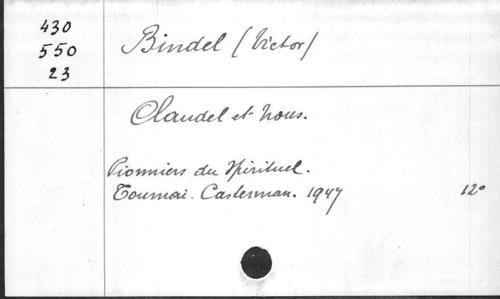 430
550
23
Bindel (Victor)
Claudel et Nous.
Pionniers du Spirituel.
Tournai. Casterman. 1947 12°